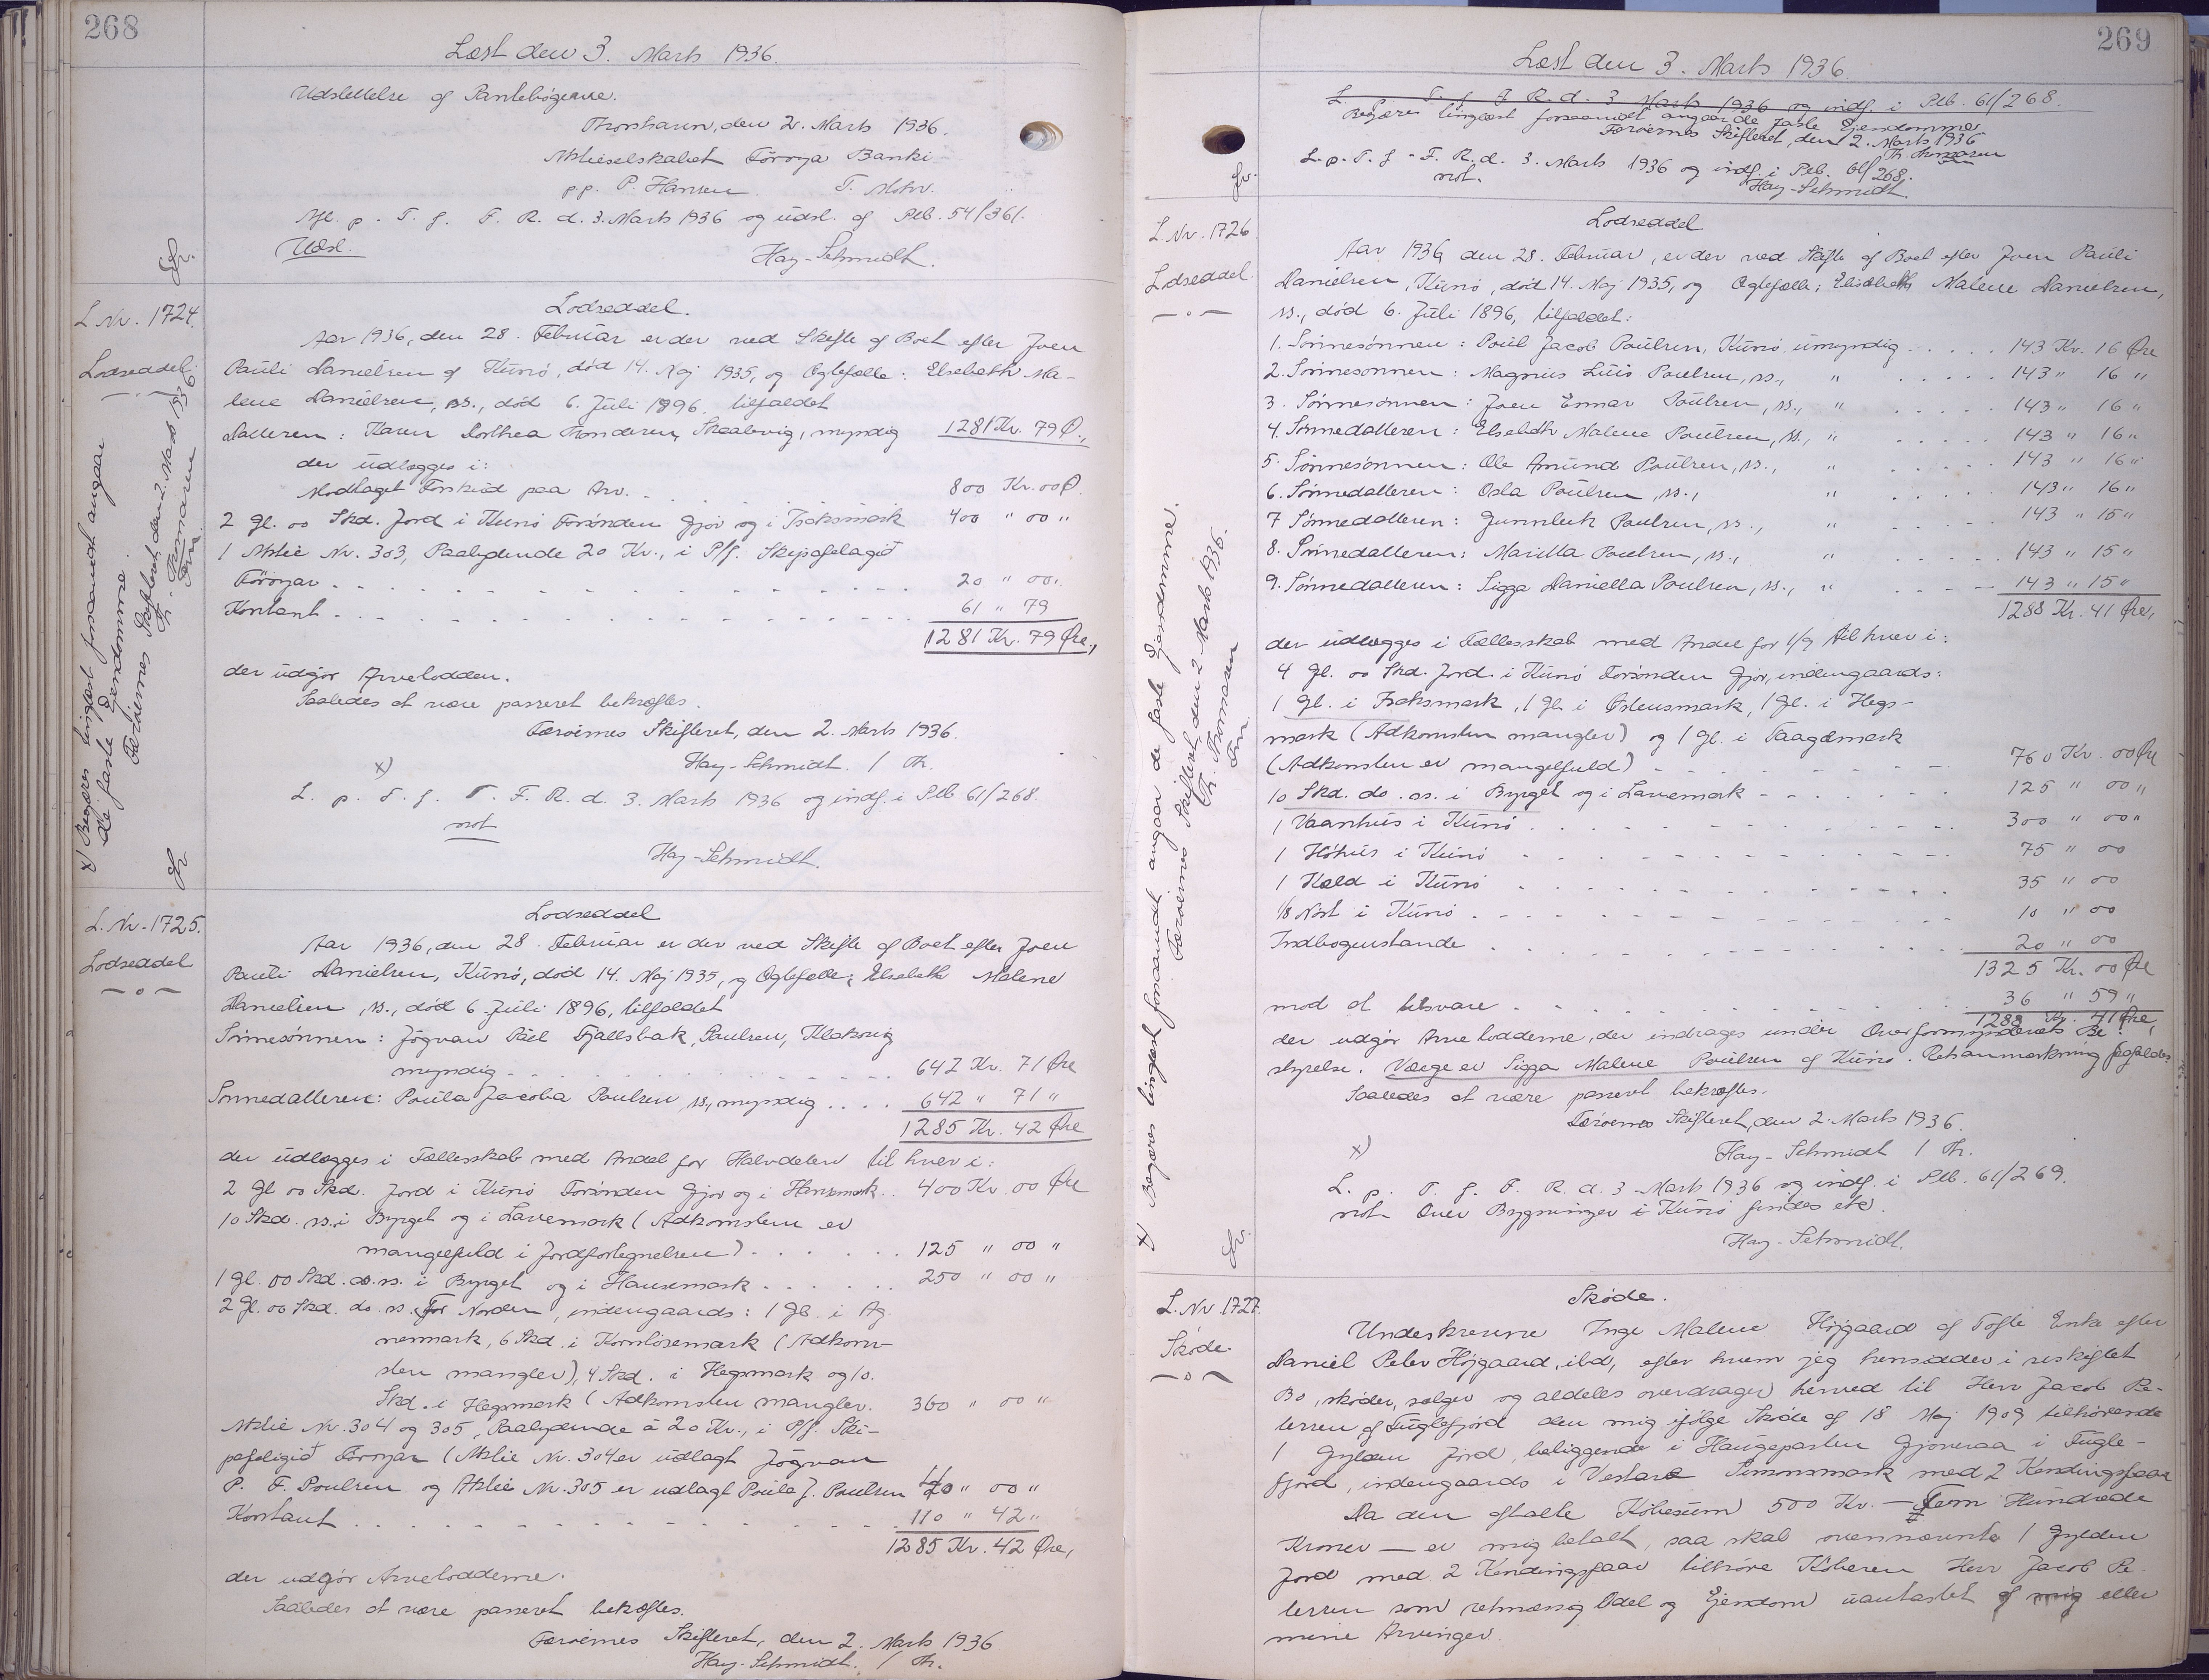 268
Læst den 3. Marts 1936.
Udslettelse af Pantebøgerne.
Thorshavn, den 2. Marts 1936.
Aktieselskabet Føroya Banki
pp. P. Hansen T. Mohr.
Afl. p. T. f. F. R. d. 3. Marts 1936 og udsl. af Ptb. 54/361.
Udsl.
Hay-Schmidt.
L. Nr. 1724.
Lodseddel.
Lodseddel.
Aar 1936, den 28. Februar er der ved Skifte af Boet efter Joen
Pauli Danielsen af Kunø, død 14. Maj 1935, og Ægtefælle: Elsebeth Ma-
lene Danielsen, ss., død 6. Juli 1896, tilfaldet
Datteren: Karen Dorthea Thomdersen, Skaalevig, myndig 1281 Kr. 79 Ø.,
der udlægges i:
Modtaget Forskud paa Arv. 800 Kr. 00 Ø.
2 Gl. 00 Skd. Jord i Kunø Forønden Gjov og i Isaksmark 400 " 00 "
1 Aktie Nr. 303, Paalydende 20 Kr., i P/f. Skipafelagið
Føroyar 20 " 00 "
Kontant 61 " 79
1281 Kr. 79 Øre.,
der udgør Arvelodden.
Saaledes at være passeret bekræftes.
Færøernes Skifteret, den 2. Marts 1936.
x) Hay-Schmidt. / Th.
L. p. T. f. F. R. d. 3. Marts 1936 og indf. i Ptb 61/268.
not
Hay-Schmidt.
x) Begæres tinglæst forsaavidt angaar
de faste Ejendomme.
Færøernes Skifteret, den 2. Marts 1936
Th. Thomasen
Fm.
L. Nr. 1725.
Lodseddel
Lodseddel
Aar 1936, den 28. Februar er der ved Skifte af Boet efter Joen
Pauli Danielsen, Kunø, død 14. Maj 1935, og Ægtefælle: Elsebeth Malene
Danielsen, ss., død 6 Juli 1896, tilfaldet
Sønnesønnen: Jógvan Páll Fjallsbak, Poulsen, Klaksvig
myndig 642 Kr. 71 Øre
Sønnedatteren: Poula Jacoba Poulsen ss., myndig 642 " 71 "
1285 Kr. 42 Øre
der udlægges i Fællesskab med Andel for Halvdelen til hver i:
2 Gl 00 Skd. Jord i Kunø Forønden Gjov og i Hansmark 400 Kr. 00 Øre
10 Skd. ss. i Byrget og i Lavemark (Adkomsten er
mangelfuld i Jordfortegnelsen) 125 " 00 "
1 Gl. 00 Skd. do. ss. i Byrget og i Hansemark 250 " 00 "
2 Gl. 00 Skd. do. ss. For Norden, indengaards: 1 Gl. i Ag-
nenmark, 6 Skd. i Kornlösemark (Adkom-
sten mangler), 4 Skd. i Hegsmark og 10.
Skd. i Hegsmark (Adkomsten mangler. 360 " 00 "
Aktie Nr. 304 og 305, Paalydende à 20 Kr., i P/f. Ski-
pafeligið Føroyar (Aktie Nr. 304 er udlagt Jógvan
P. F. Poulsen og Aktie Nr. 305 er udlagt Poula J. Poulsen 40 " 00 "
Kontant 110 " 42 "
1285 Kr. 42 Øre,
der udgør Arvelodderne.
Saaledes at være passeret bekræftes.
Færøernes Skifteret, den 2. Marts 1936
Hay-Schmidt. / Th.
269
Læst den 3. Marts 1936.
L. T. f. F. R. d. 3 Marts 1936 og indf. i Ptb. 61/268.
Begæres tinglæst forsaavidt angaar de faste Ejendomme
Færøernes Skifteret, den 2. Marts 1936
Th. Thomasen
L. p. T. f. F. R. d. 3. Marts 1936 og indf. i Ptb. 61/268.
not. Hay-Schmidt.
L. Nr. 1726.
Lodseddel.
Lodseddel
Aar 1936, den 28. Februar, er der ved Skifte af Boet efter Joen Pauli
Danielsen, Kunø, død 14. Maj 1935, og Ægtefælle: Elsebeth Malene Danielsen,
ss., død 6. Juli 1896, tilfaldet:
1. Sønnesønnen: Poul Jacob Poulsen, Kunø, umyndig 143 Kr. 16 Øre
2. Sønnesønnen: Magnus Luis Poulsen, ss., " 143 " 16 "
3. Sønnesønnen: Joen Ennar Poulsen, ss., " 143 " 16 "
4. Sønnedatteren: Elsebeth Malene Poulsen, ss., " 143 " 16 "
5. Sønnesønnen: Ole Amund Poulsen, ss., " 143 " 16 "
6. Sønnedatteren: Osla Poulsen, ss., " 143 " 16 "
7 Sønnedatteren: Gunnleik Poulsen, ss., " 143 " 15 "
8. Sønnedatteren: Maritta Poulsen, ss., " 143 " 15 "
9. Sønnedatteren: Sigga Daniella Poulsen, ss., " 143 " 15 "
1288 Kr. 41 Øre,
der udlægges i Fællesskab med Andel for 1/9 til hver i:
4 Gl. 00 Skd. Jord i Kunø Forønden Gjov, indengaards:
1 Gl. i Isaksmark, 1 Gl. i Østensmark, 1 Gl. i Hegs-
mark (Adkomsten mangler) og 1 Gl. i Taagdmark
(Adkomsten er mangelfuld) 760 Kr. 00 Øre
10 Skd. do. ss. i Byrget og i Lavemark 125 " 00 "
1 Vaanhus i Kunø 300 " 00 "
1 Høhus i Kunø 75 " 00
1 Kæld i Kunø 35 " 00
1/8 Nöst i Kunø 10 " 00
Indbogenstande 20 " 00
1325 Kr. 00 Øre
mod at tilsvare 36 " 59 "
1288 Kr. 41 Øre,
der udgør Arvelodderne, der inddrages under Overformynderiets Be-
styrelse. Værge er Sigga Malene Poulsen af Kunø. Retsanmærkning frafaldes
Saaledes at være passeret bekræftes.
Færøernes Skifteret, den 2. Marts 1936.
x) Hay-Schmidt / Th.
L. p. T. f. F. R. d. 3 Marts 1936 og indf. i Ptb. 61/269.
not. Over Bygninger i Kunø findes ete.
Hay-Schmidt.
x) Begæres tinglæst forsaavidt angaar de faste Ejendomme.
Færøernes Skifteret, den 2 Marts 1936.
Th. Thomasen
Fm.
L. Nr. 1727.
Skøde.
Skøde.
Undeskrevne Inge Malene Højgaard af Tofte Enke efter
Daniel Peter Højgaard, ibd, efter hvem jeg hensidder i uskiftet
Bo, skøder, sælger og aldeles overdrager herved til Herr Jacob Pe-
tersen af Fuglefjord den mig ifølge Skøde af 18 Maj 1909 tilhørende
1 Gylden Jord, beliggende i Haugeparten Gjoveraa i Fugle-
fjord, indengaards i Vestare Simonsmark med 2 Kendingsfaar
Da den aftalte Købesum 500 Kr. — Fem Hundrede
Kroner — er mig betalt, saa skal ovennævnte 1 Gylden
Jord med 2 Kendingsfaar tilhøre Køberen Herr Jacob Pe-
tersen som retmæssig Odel og Ejendom uantastet af mig eller
mine Arvinger.